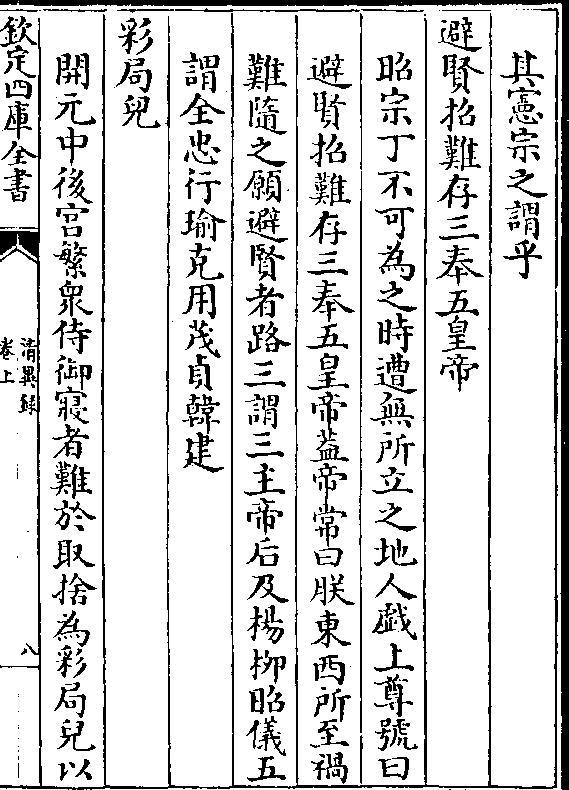 其憲宗之謂乎
避賢招難存三奉五皇帝
昭宗丁不可為之時遭無所立之地人戯上尊號曰
避賢招難存三奉五皇帝葢帝常曰朕東西所至禍
難隨之願避賢者路三謂三主帝后及楊柳昭儀五
謂全忠行瑜克用茂貞韓建
彩局兒
開元中後宫繁衆侍御寢者難於取捨為彩局兒以
欽定四庫全書
清異録
卷上
八